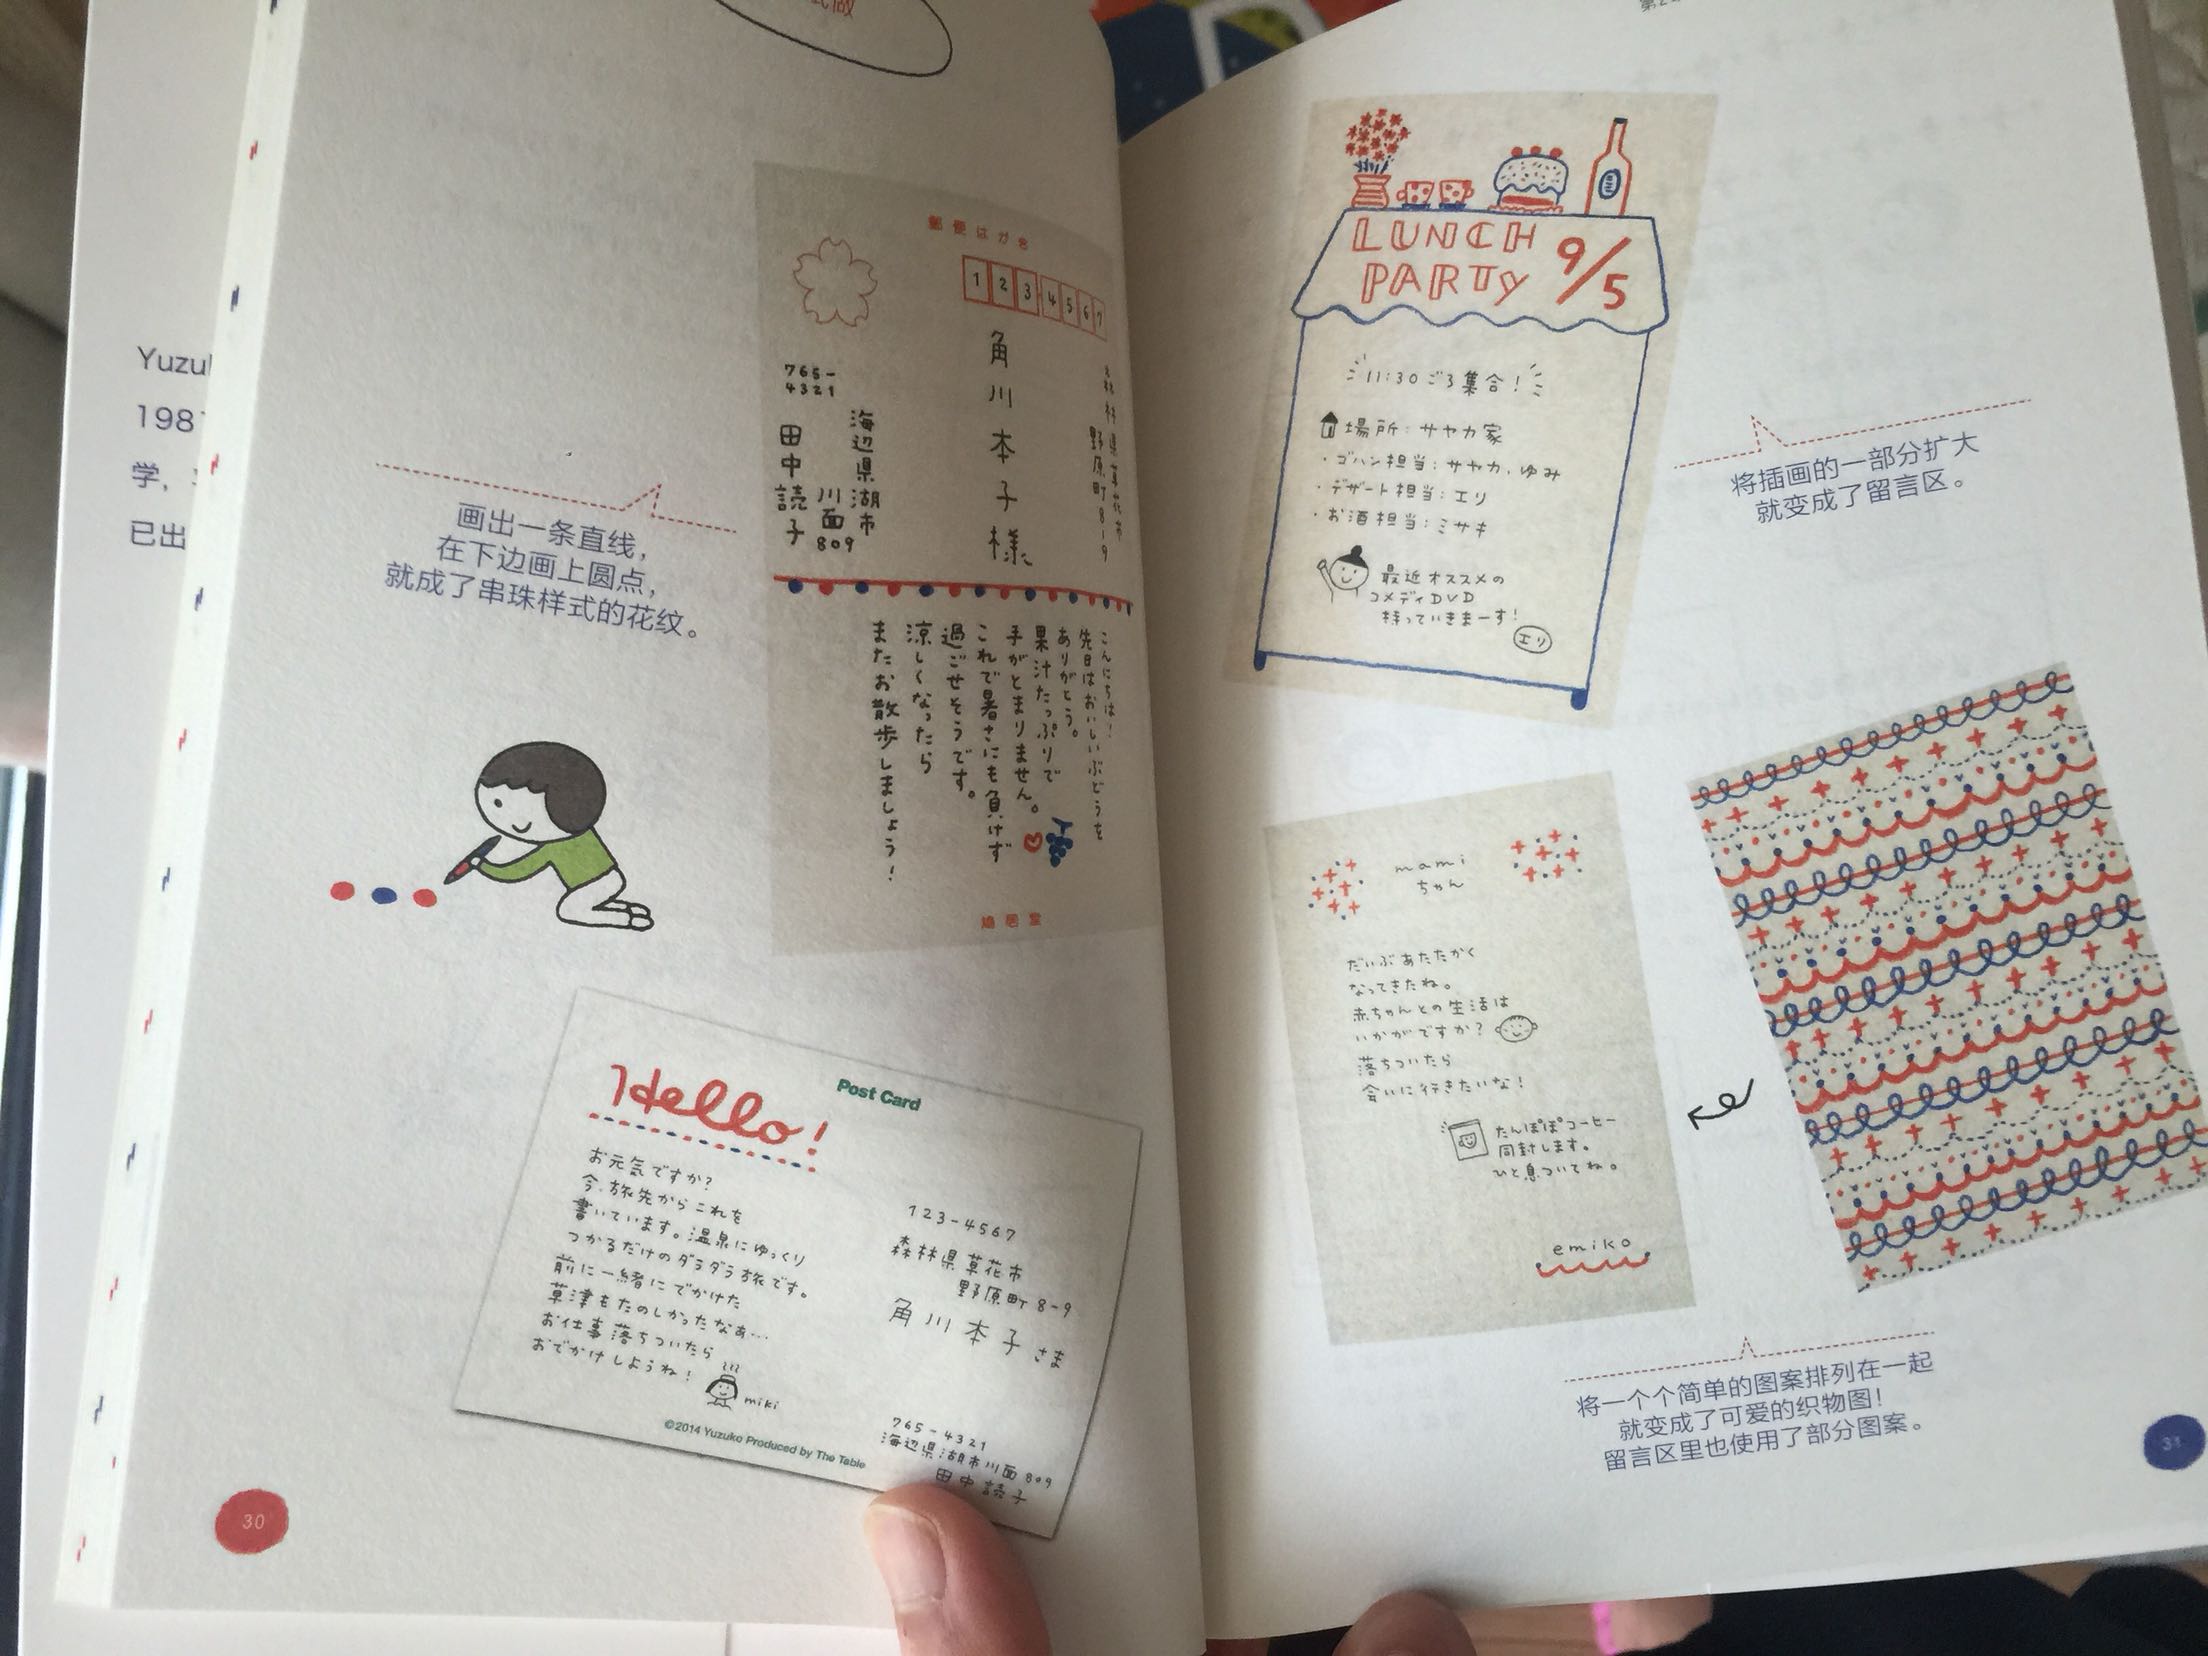 式做
Yuzu
198
学,
已出
画出一条直线，
在下边画上圆点，
就成了串珠样式的花纹。
郵便はがき
1234567
森林県草花市
野原町8-9
角川本子様
海辺県湖市
川面809
765-
4321
田中読子
こんにちは！
先日はおいしいぶどうを
ありがとう。
果汁たっぷりで
手がとまりません。
これで暑さにも負けず
過ごせそうです。
涼しくなったら
またお散歩しましょう！
鳩居堂
Hello!
Post Card
お元気ですか?
今、旅先からこれを
書いています。温泉にゆっくり
つかるだけのダラダラ旅です。
前に一緒にでかけた
草津もたのしかったなぁ…
お仕事落ちついたら
おでかけしようね！
miki
123-4567
森林県草花市
野原町8-9
角川本子さま
765-4321
海辺県湖市川面809
田中読子
©2014 Yuzuko Produced by The Table
30
LUNCH
PARTY 9/5
11:30ごろ集合！
場所：サヤカ家
・ゴハン担当：サヤカ、ゆみ
・デザート担当：エリ
・お酒担当：ミサキ
最近オススメの
コメディDVD
持っていきまーす！
エリ
将插画的一部分扩大
就变成了留言区。
mami
ちゃん
だいぶあたたかく
なってきたね。
赤ちゃんとの生活は
いかがですか？
落ちついたら
会いに行きたいな！
たんぽぽコーヒー
同封します。
ひと息ついてね。
emiko
将一个个简单的图案排列在一起
就变成了可爱的织物图！
留言区里也使用了部分图案。
31